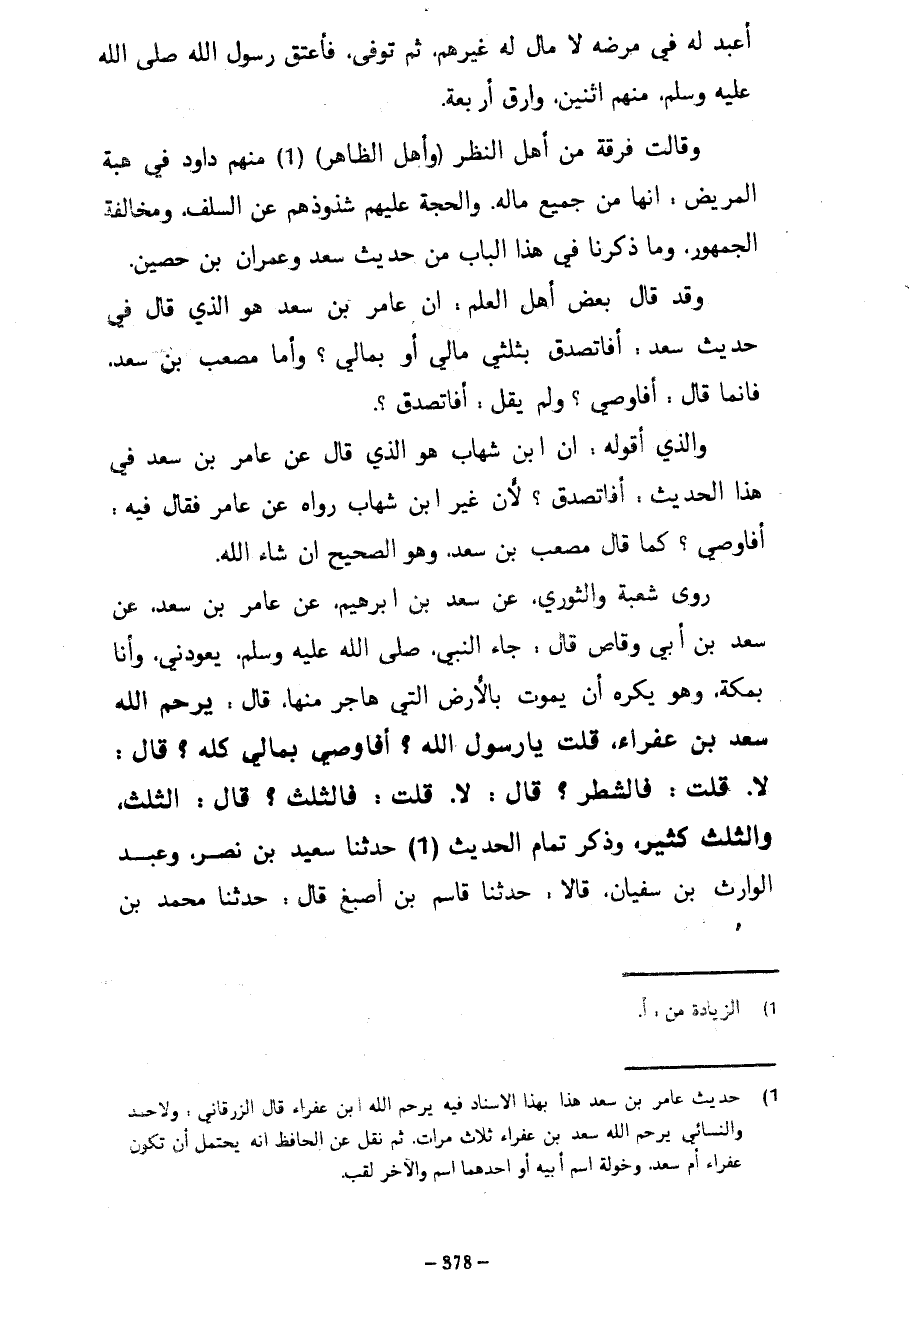 أعبد له في مرضه لا مال له غيرهم، ثم توفى، فأعتق رسول الله صلى الله
عليه وسلم، منهم اثنين، وارق أربعة.
وقالت فرقة من أهل النظر (وأهل الظاهر) (1) منهم داود في هبة
المريض : انها من جميع ماله. والحجة عليهم شذوذهم عن السلف، ومخالفة
الجمهور، وما ذكرنا في هذا الباب من حديث سعد وعمران بن حصين.
وقد قال بعض أهل العلم : ان عامر بن سعد هو الذي قال في
حديث سعد : أفاتصدق بثلثي مالي أو بمالي ؟ وأما مصعب بن سعد،
فانما قال : أفاوصي ؟ ولم يقل : أفاتصدق ؟.
والذي أقوله : ان ابن شهاب هو الذي قال عن عامر بن سعد في
هذا الحديث : أفاتصدق ؟ لأن غير ابن شهاب رواه عن عامر فقال فيه :
أفاوصي ؟ كما قال مصعب بن سعد، وهو الصحيح ان شاء الله.
روى شعبة والثوري، عن سعد بن ابرهيم، عن عامر بن سعد، عن
سعد بن أبي وقاص قال : جاء النبي، صلى الله عليه وسلم، يعودني، وأنا
بمكة، وهو يكره أن يموت بالأرض التي هاجر منها، قال : يرحم الله
سعد بن عفراء، قلت يارسول الله ؟ أفاوصي بمالي كله ؟ قال :
لا. قلت : فالشطر ؟ قال : لا. قلت : فالثلث ؟ قال : الثلث،
والثلث كثير، وذكر تمام الحديث (1) حدثنا سعيد بن نصر، وعبد
الوارث بن سفيان، قالا : حدثنا قاسم بن أصبغ قال : حدثنا محمد بن
1) الزيادة من : أ.
1) حديث عامر بن سعد هذا بهذا الاسناد فيه يرحم الله ابن عفراء قال الزرقاني : ولاحمد
والنسائي يرحم الله سعد بن عفراء ثلاث مرات. ثم نقل عن الحافظ انه يحتمل أن تكون
عفراء أم سعد، وخولة اسم أبيه أو احدهما اسم والآخر لقب.
- 378 -